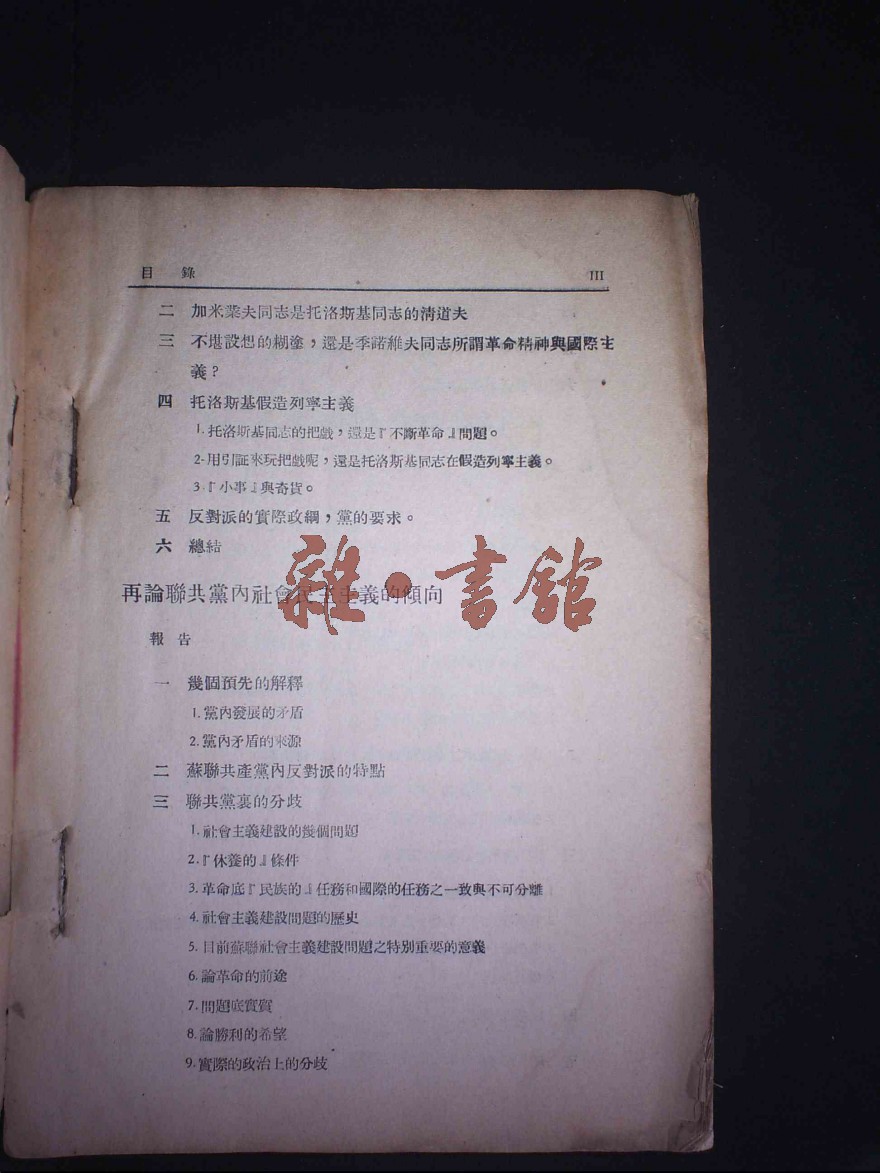 目 錄 III
二 加米業夫同志是托洛斯基同志的清道夫
三 不堪設想的糊塗，還是季諾維夫同志所謂革命精神與國際主
義？
四 托洛斯基假造列寧主義
1. 托洛斯基同志的把戲，還是『不斷革命』問題。
2. 用引証來玩把戲呢，還是托洛斯基同志在假造列寧主義。
3. 『小事』與奇貨。
五 反對派的實際政綱，黨的要求。
六 總結
雜·書舘
再論聯共黨內社會民主主義的傾向
報 告
一 幾個預先的解釋
1. 黨內發展的矛盾
2. 黨內矛盾的來源
二 蘇聯共產黨內反對派的特點
三 聯共黨裏的分歧
1. 社會主義建設的幾個問題
2. 『休養的』條件
3. 革命底『民族的』任務和國際的任務之一致與不可分離
4. 社會主義建設問題的歷史
5. 目前蘇聯社會主義建設問題之特別重要的意義
6. 論革命的前途
7. 問題底實質
8. 論勝利的希望
9. 實際的政治上的分歧